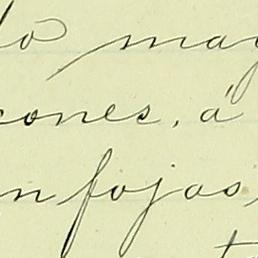 lo may
cones, á
n fojas,